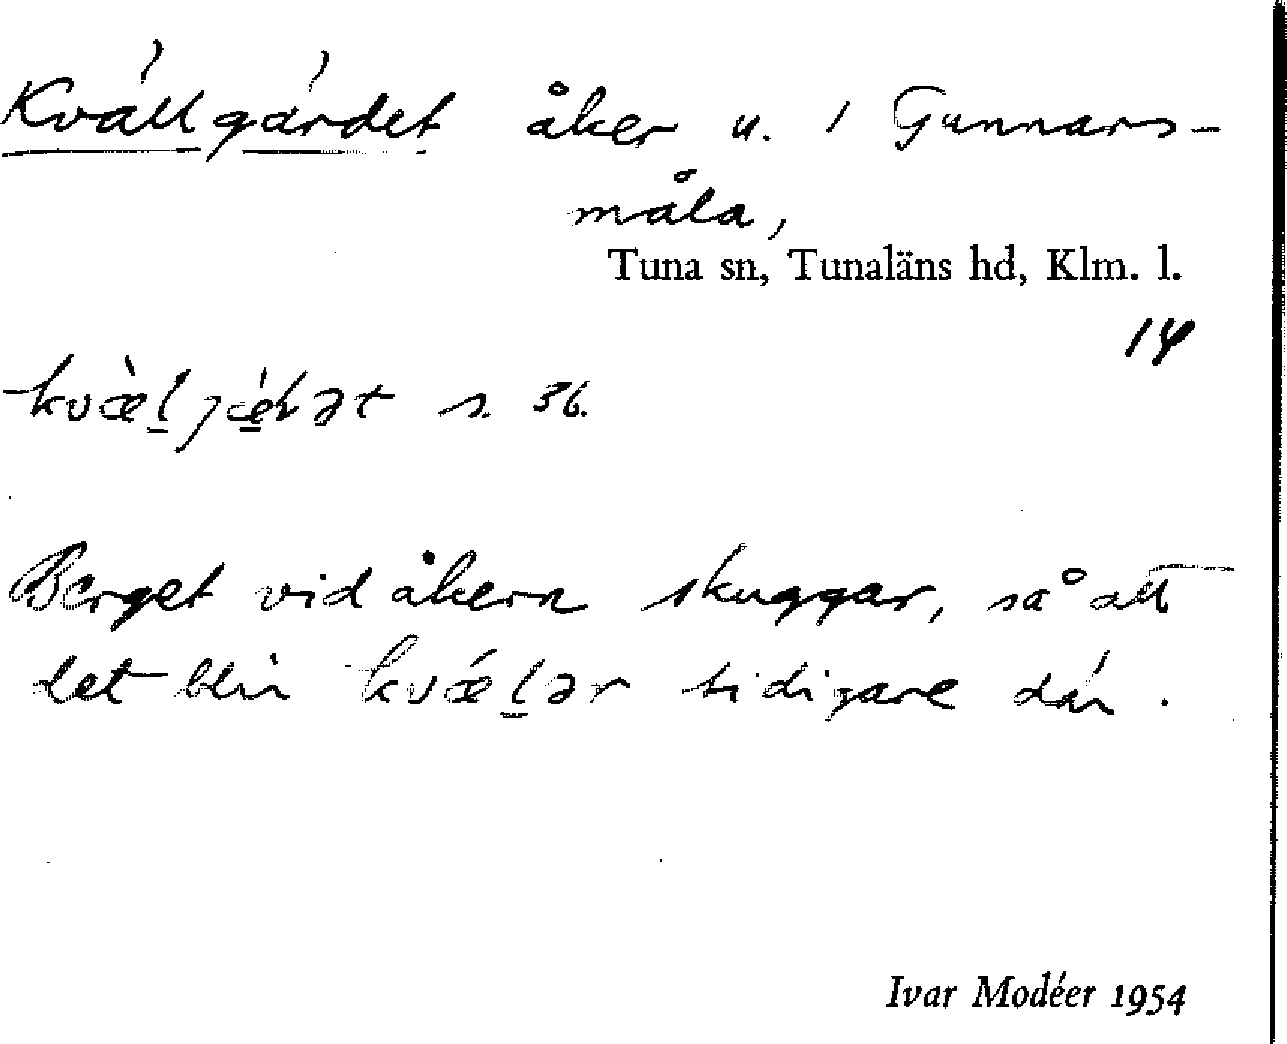 Kvällgärdet åker u. 1 Gunnars-
måla,
Tuna sn, Tunaläns hd, Klm. l.
14
s. 36.
Berget vid åkern skuggar, så att
det blir kvǽl̲ər tidigare där.
Ivar Modéer 1954